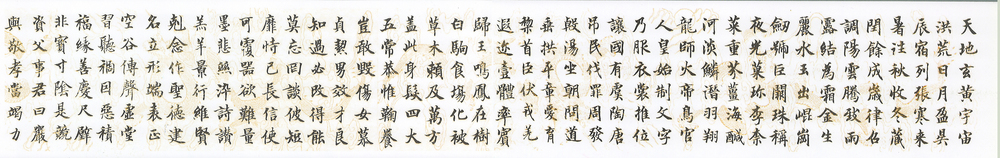 天地玄黃宇宙
洪荒日月盈昃
辰宿列張寒來
暑往秋收冬藏
閏餘成歲律召
調陽雲騰致雨
露結為霜金生
麗水玉出崐崗
劒號巨闕珠稱
夜光菓珍李柰
菜重芥薑海鹹
河淡鱗潛羽翔
龍師火帝鳥官
人皇始制文字
乃服衣裳推位
讓國有虞陶唐
吊民伐罪周發
殷湯坐朝問道
垂拱平章愛育
黎首臣伏戎羌
遐迩壹體率賓
歸王鳴鳳在樹
白駒食場化被
草木賴及萬方
蓋此身髮四大
五常恭惟鞠養
豈敢毀傷女慕
貞絜男效才良
知過必改得能
莫忘罔談彼短
靡恃己長信使
可覆器欲難量
墨悲絲染詩讚
羔羊景行維賢
剋念作聖德建
名立形端表正
空谷傳聲虛堂
習聽禍因惡積
福緣善慶尺璧
非寶寸陰是競
資父事君曰嚴
與敬孝當竭力